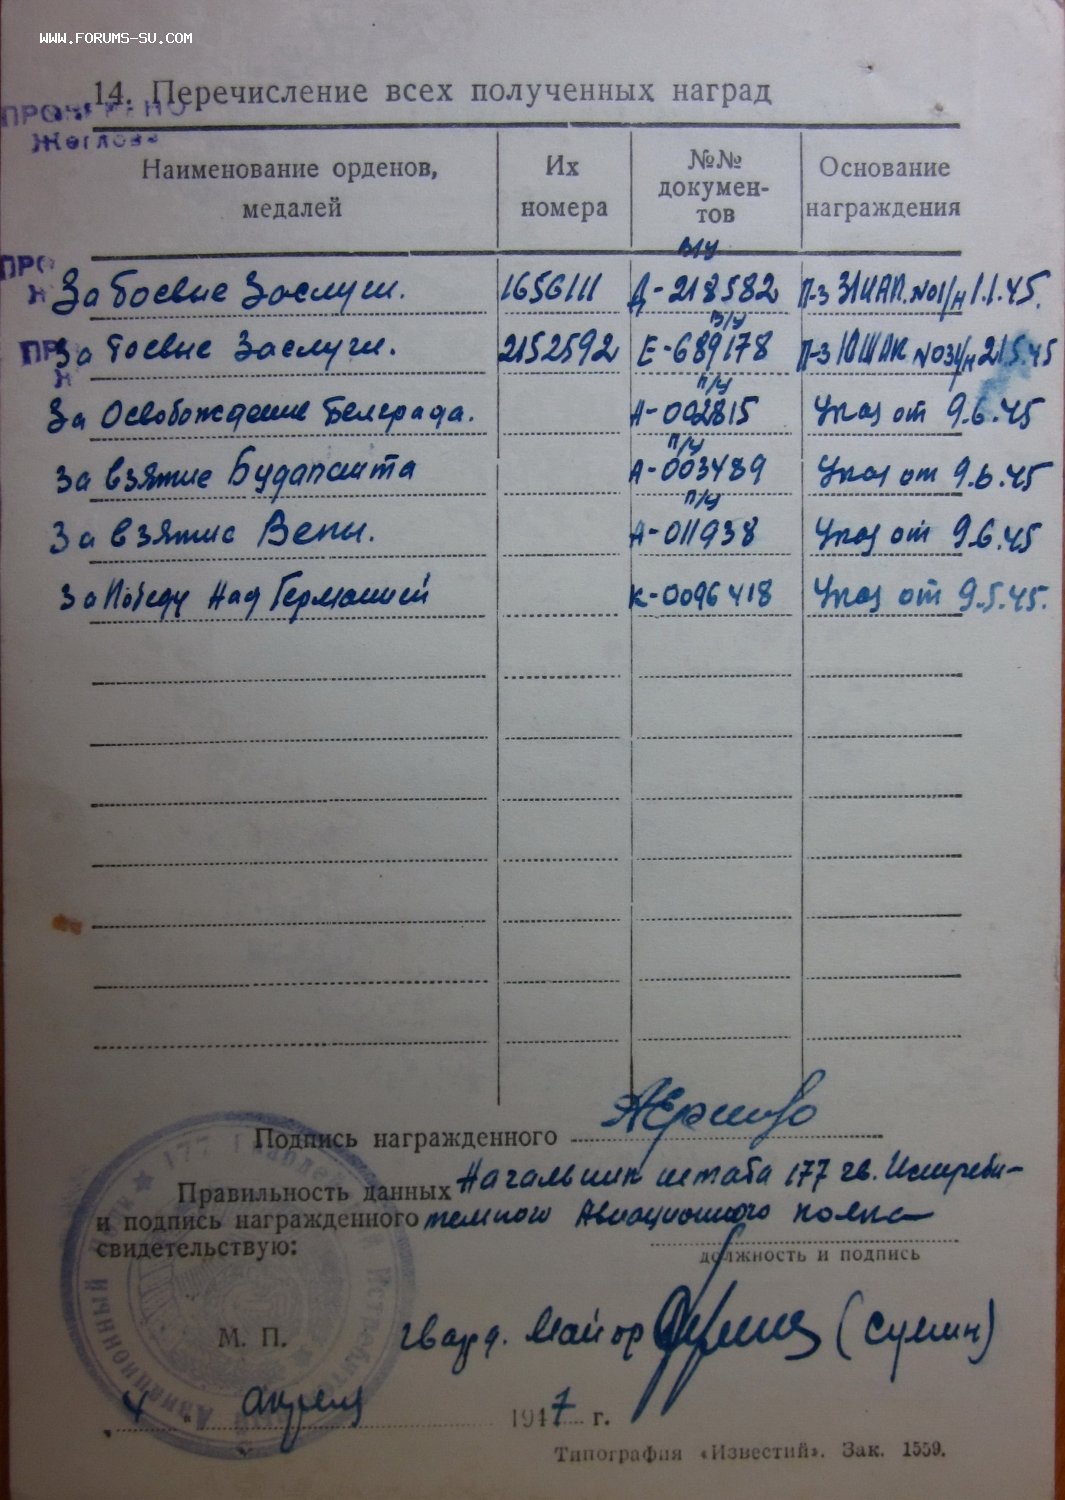 www.forums-su.com
14. Перечисление всех полученных наград
ПРОВЕРЕНО
Жеглова
Наименование орденов, медалей
Их номера
№№ документов
Основание награждения
В/у
За боевые заслуги. 1656111 Д-218582 П-з 3 IАК. №01/н 1.1.45.
В/у
За боевые заслуги. 2152592 Е-689178 П-з 10 ШАК №031/н 21.5.45
П/у
За Освобождение Белграда. А-002815 Указ от 9.6.45
П/у
За взятие Будапешта А-003489 Указ от 9.6.45
П/у
За взятие Вены. А-011938 Указ от 9.6.45
За Победу над Германией К-0096418 Указ от 9.5.45.
Подпись награжденного
Правильность данных Начальник штаба 177 гв. Истреби-
и подпись награжденного тельного Авиационного полка
свидетельствую:
должность и подпись
М. П.
гвард. Майор (Сумин)
4 апреля 1947 г.
Типография «Известий». Зак. 1559.
177 Гвардейский Истребительный Авиационный полк